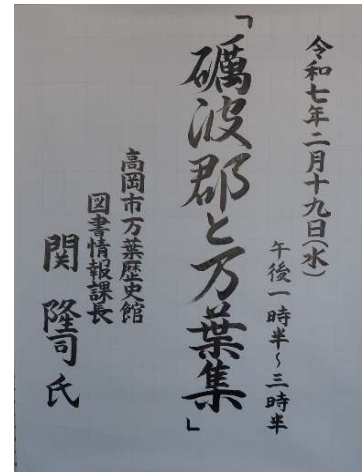 令和七年二月十九日(水)
午後一時半～三時半
「礪波郡と万葉集」
高岡市万葉歴史館
図書情報課長
関 隆司 氏